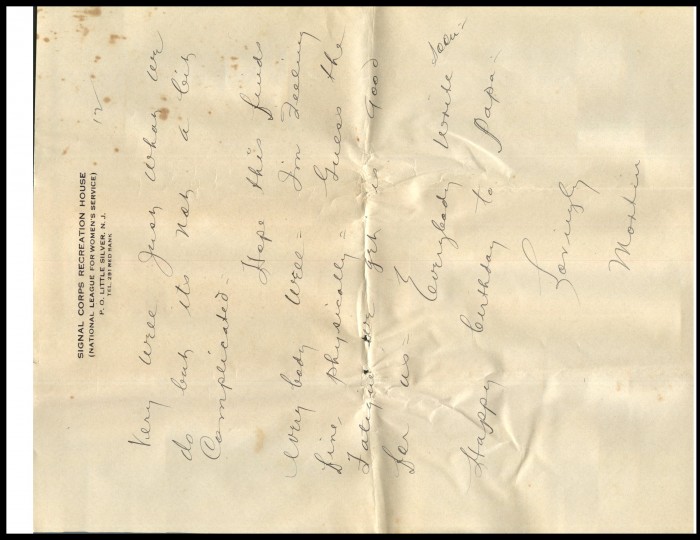 SIGNAL CORPS RECREATION HOUSE
(NATIONAL LEAGUE FOR WOMEN'S SERVICE)
P. O. LITTLE SILVER, N. J.
TEL. 291 RED BANK
12
Very well just what we
do but its not a bit
Complicated-
Hope this finds
every body well- Im feeling
fine, physically- Guess the
Fatigue we get is good
for us-
Everybody write soon-
Happy birthday to Papa-
Lovingly
Martin